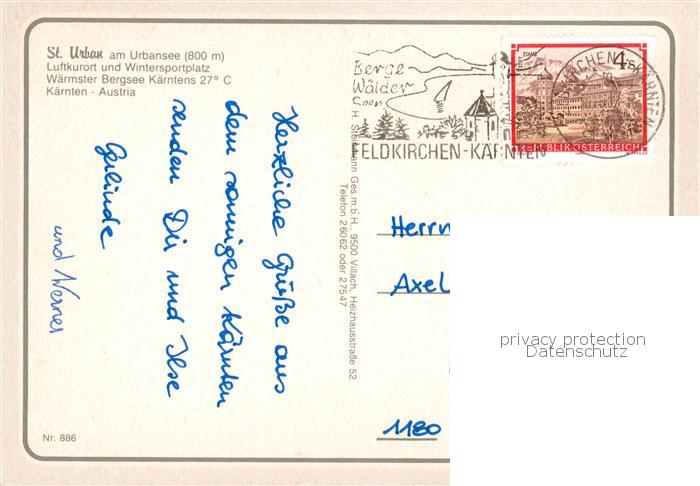 St. Urban am Urbansee (800 m)
Luftkurort und Wintersportplatz
Wärmster Bergsee Kärntens 27° C
Kärnten - Austria
Herzliche Grüße aus
dem sonnigen Kärnten
senden Dir und Ilse
Gerlinde
und Werner
Nr. 886
Ges.m.b.H., 9500 Villach, Heizhausstraße 52
Telefon 26062 oder 27547
Berge
Wälder
Seen
FELDKIRCHEN-KÄRNTEN
STAMS
4
REPUBLIK ÖSTERREICH
KIRCHEN
KÄRNTEN
Herrn
Axel
1180
privacy protection
Datenschutz